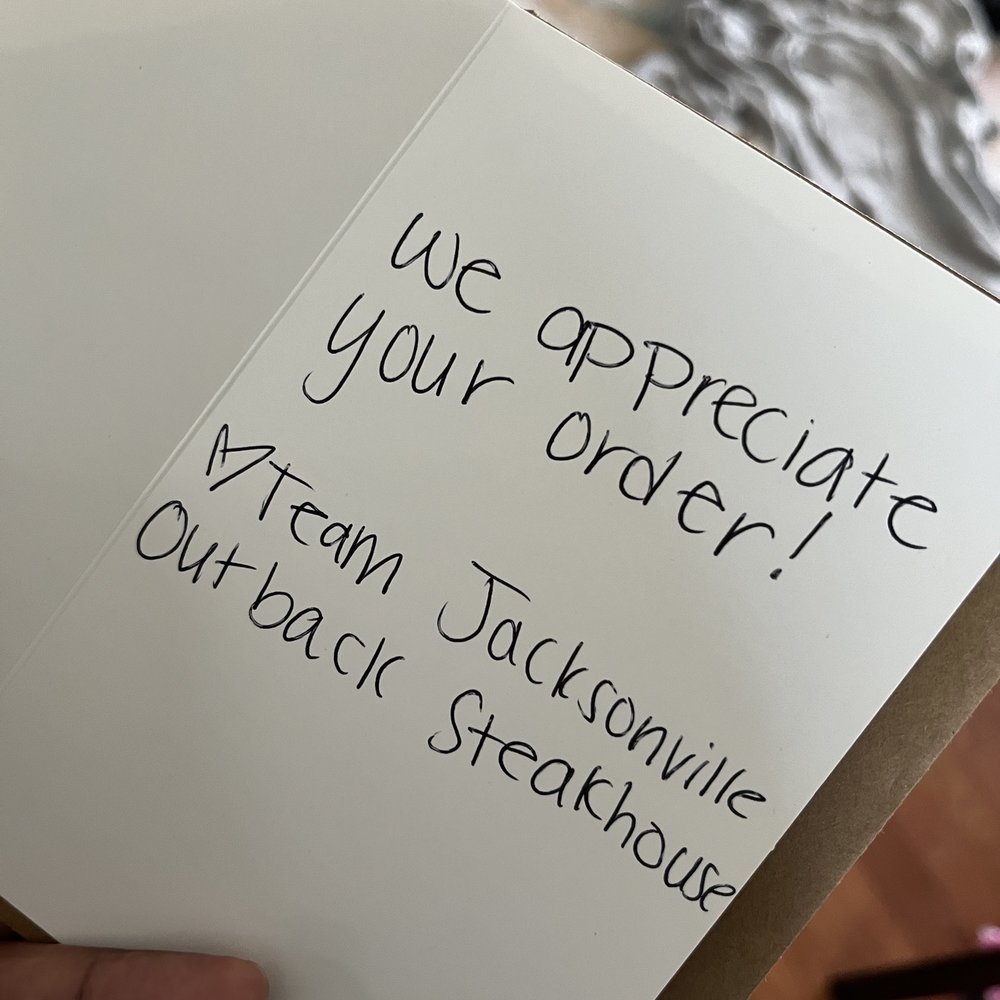 We appreciate
your order!
♡Team Jacksonville
Outback Steakhouse